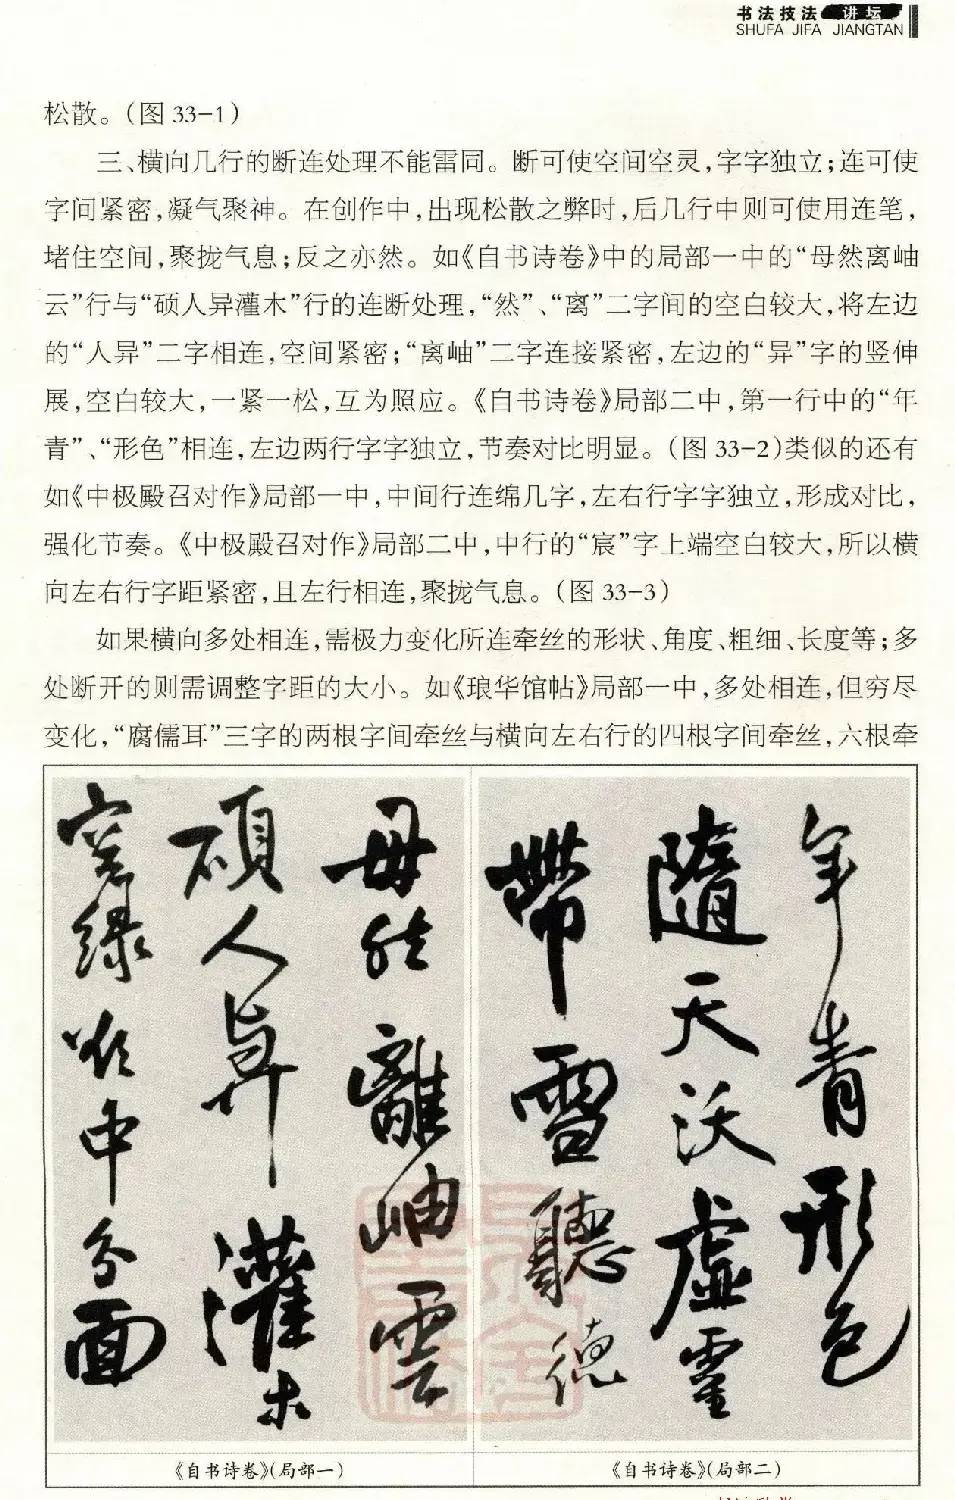 书法技法 讲坛
SHUFA JIFA JIANGTAN
松散。（图 33-1）
三、横向几行的断连处理不能雷同。断可使空间空灵，字字独立；连可使
字间紧密，凝气聚神。在创作中，出现松散之弊时，后几行中则可使用连笔，
堵住空间，聚拢气息；反之亦然。如《自书诗卷》中的局部一中的“母然离岫
云”行与“硕人异灌木”行的连断处理，“然”、“离”二字间的空白较大，将左边
的“人异”二字相连，空间紧密；“离岫”二字连接紧密，左边的“异”字的竖伸
展，空白较大，一紧一松，互为照应。《自书诗卷》局部二中，第一行中的“年
青”、“形色”相连，左边两行字字独立，节奏对比明显。（图 33-2）类似的还有
如《中极殿召对作》局部一中，中间行连绵几字，左右行字字独立，形成对比，
强化节奏。《中极殿召对作》局部二中，中行的“宸”字上端空白较大，所以横
向左右行字距紧密，且左行相连，聚拢气息。（图 33-3）
如果横向多处相连，需极力变化所连牵丝的形状、角度、粗细、长度等；多
处断开的则需调整字距的大小。如《琅华馆帖》局部一中，多处相连，但穷尽
变化，“腐儒耳”三字的两根字间牵丝与横向左右行的四根字间牵丝，六根牵
年青形色
随天沃虚霍
带雪听德
母然離岫雲
碩人异灌木
窓绿欣中分面
《自书诗卷》(局部一)
《自书诗卷》(局部二)